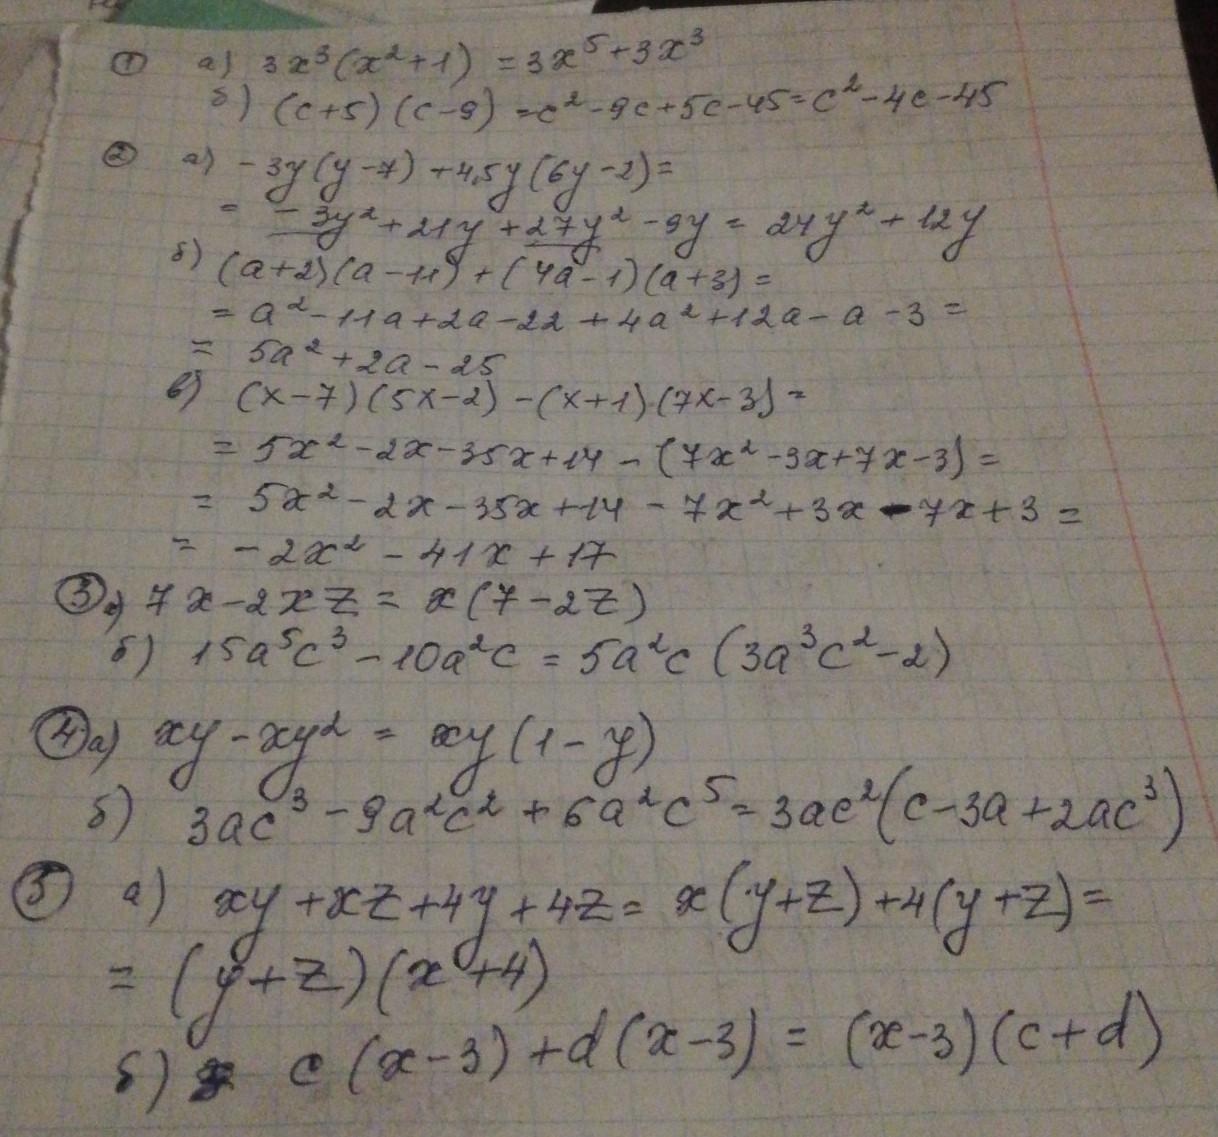 ① а) 3x³(x²+1) = 3x⁵+3x³
б) (c+5)(c-9) = c²-9c+5c-45 = c²-4c-45
② а) -3y(y-7)+4,5y(6y-2)=
= -3y²+21y+27y²-9y = 24y²+12y
б) (a+2)(a-11)+(4a-1)(a+3)=
= a²-11a+2a-22+4a²+12a-a-3=
= 5a²+2a-25
в) (x-7)(5x-2)-(x+1)(7x-3)=
= 5x²-2x-35x+14-(7x²-3x+7x-3)=
= 5x²-2x-35x+14-7x²+3x-7x+3=
= -2x²-41x+17
③ а) 7x-2xz = x(7-2z)
б) 15a⁵c³-10a²c = 5a²c(3a³c²-2)
④ а) xy-xy² = xy(1-y)
б) 3ac³-9a²c²+6a²c⁵ = 3ac²(c-3a+2ac³)
⑤ а) xy+xz+4y+4z = x(y+z)+4(y+z)=
= (y+z)(x+4)
б) c(x-3)+d(x-3) = (x-3)(c+d)